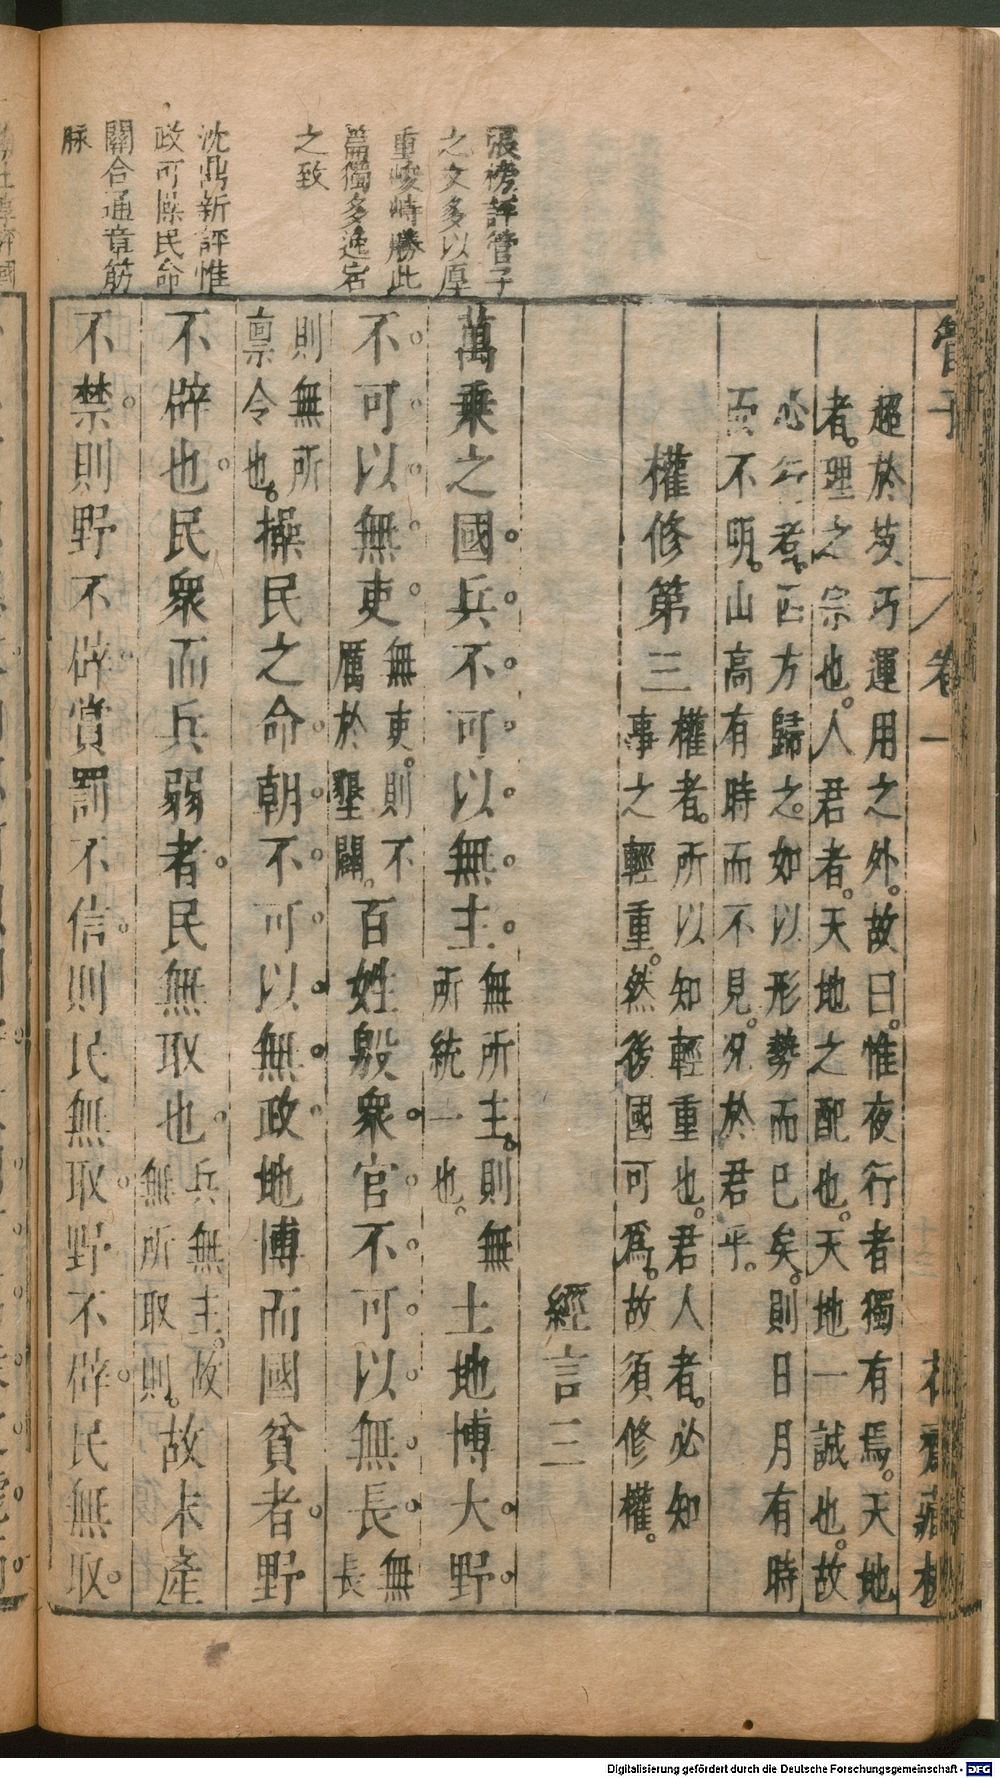 管子
卷一
花齋藏板
超於芰巧運用之外。故曰。惟夜行者獨有焉。天地
者。理之宗也。人君者。天地之配也。天地一誠也。故
必行者。四方歸之。如以形勢而已矣。則日月有時
而不明。山高有時而不見。况於君乎。
權修第三
權者。所以知輕重也。君人者。必知
事之輕重。然後國可爲。故須修權。
經言三
萬乘之國。兵不可以無主。
無所主。則無
所統一也。
土地博大。野
不可以無吏。
無吏。則不
厲於墾闢。
百姓殷衆。官不可以無長。
無
長
則無所
禀令也。
操民之命。朝不可以無政。地博而國貧者。野
不辟也。民衆而兵弱者。民無取也。
兵無主。故
無所取則。
故末產
不禁。則野不辟。賞罰不信。則民無取。野不辟。民無取。
張榜評管子
之文多以厚
重峻峙勝此
篇獨多逸宕
之致
沈鼎新評惟
政可操民命
關合通章筋
脉
Digitalisierung gefördert durch die Deutsche Forschungsgemeinschaft - DFG